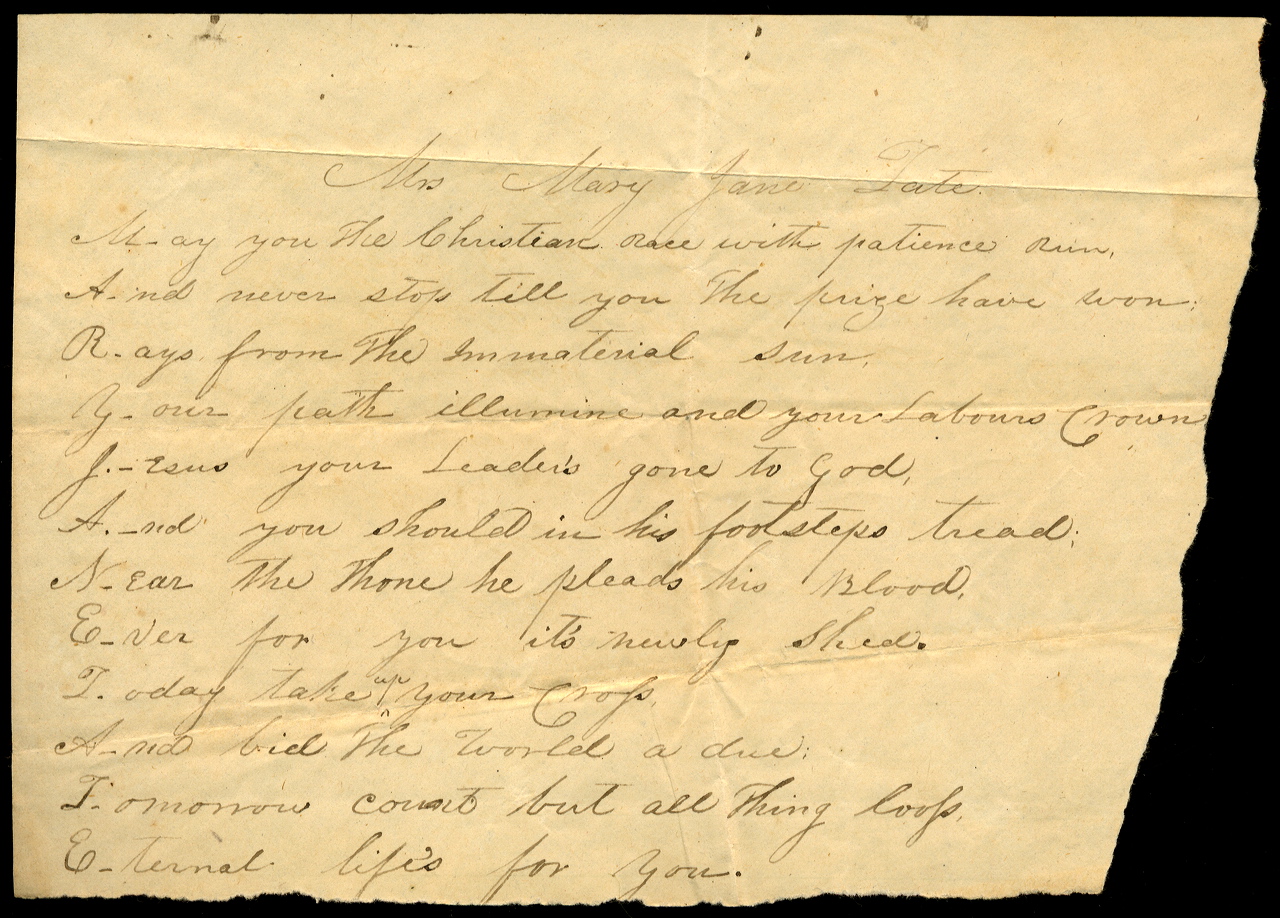 Mrs Mary Jane Tate.
M-ay you the Christian race with patience run,
A-nd never stop till you the prize have won;
R-ays from the immaterial sun,
Y-our path illumine and your Labours Crown
J.-esus your Leader's gone to God,
A.-nd you should in his footsteps tread;
N-ear the thone he pleads his Blood,
E-ver for you it's newly shed.
T-oday take up your Croſs,
A-nd bid the World a due;
T-omorrow count but all thing looſs,
E-ternal life's for you.